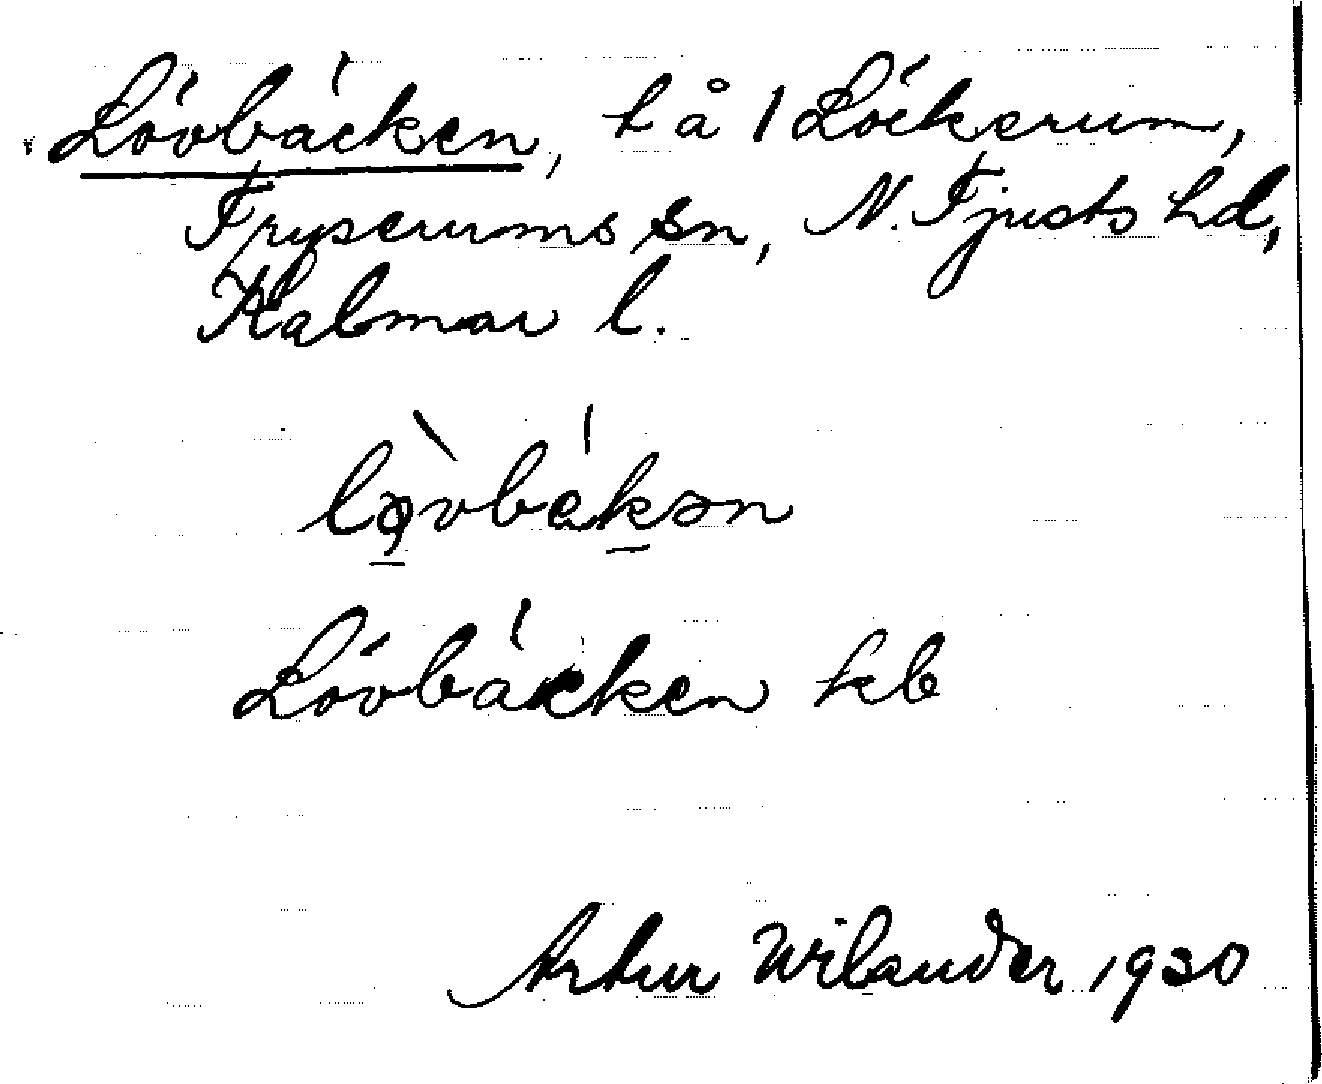 Lövbäcken, t å 1 Löckerum,
Tryserums sn, N. Tjusts hd,
Kalmar l.
Lövbäcken kb
Artur Wilander 1930